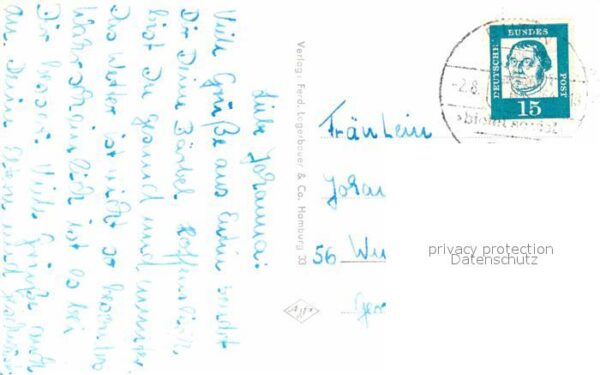 Liebe Johanna!
Viele Grüße aus Eutin sendet
Dir Deine Bärbel. Hoffentlich
bist Du gesund und munter.
Das Wetter ist nicht so
Wahrscheinlich ist es bei
Dir besser. Viele Grüße auch
an Deine Eltern und
Verlag: Ferd. Lagerbauer & Co. Hamburg 33
Agfa
DEUTSCHE BUNDES POST
15
-2.8.
Fräulein
Johan
56 Wu
privacy protection
Datenschutz